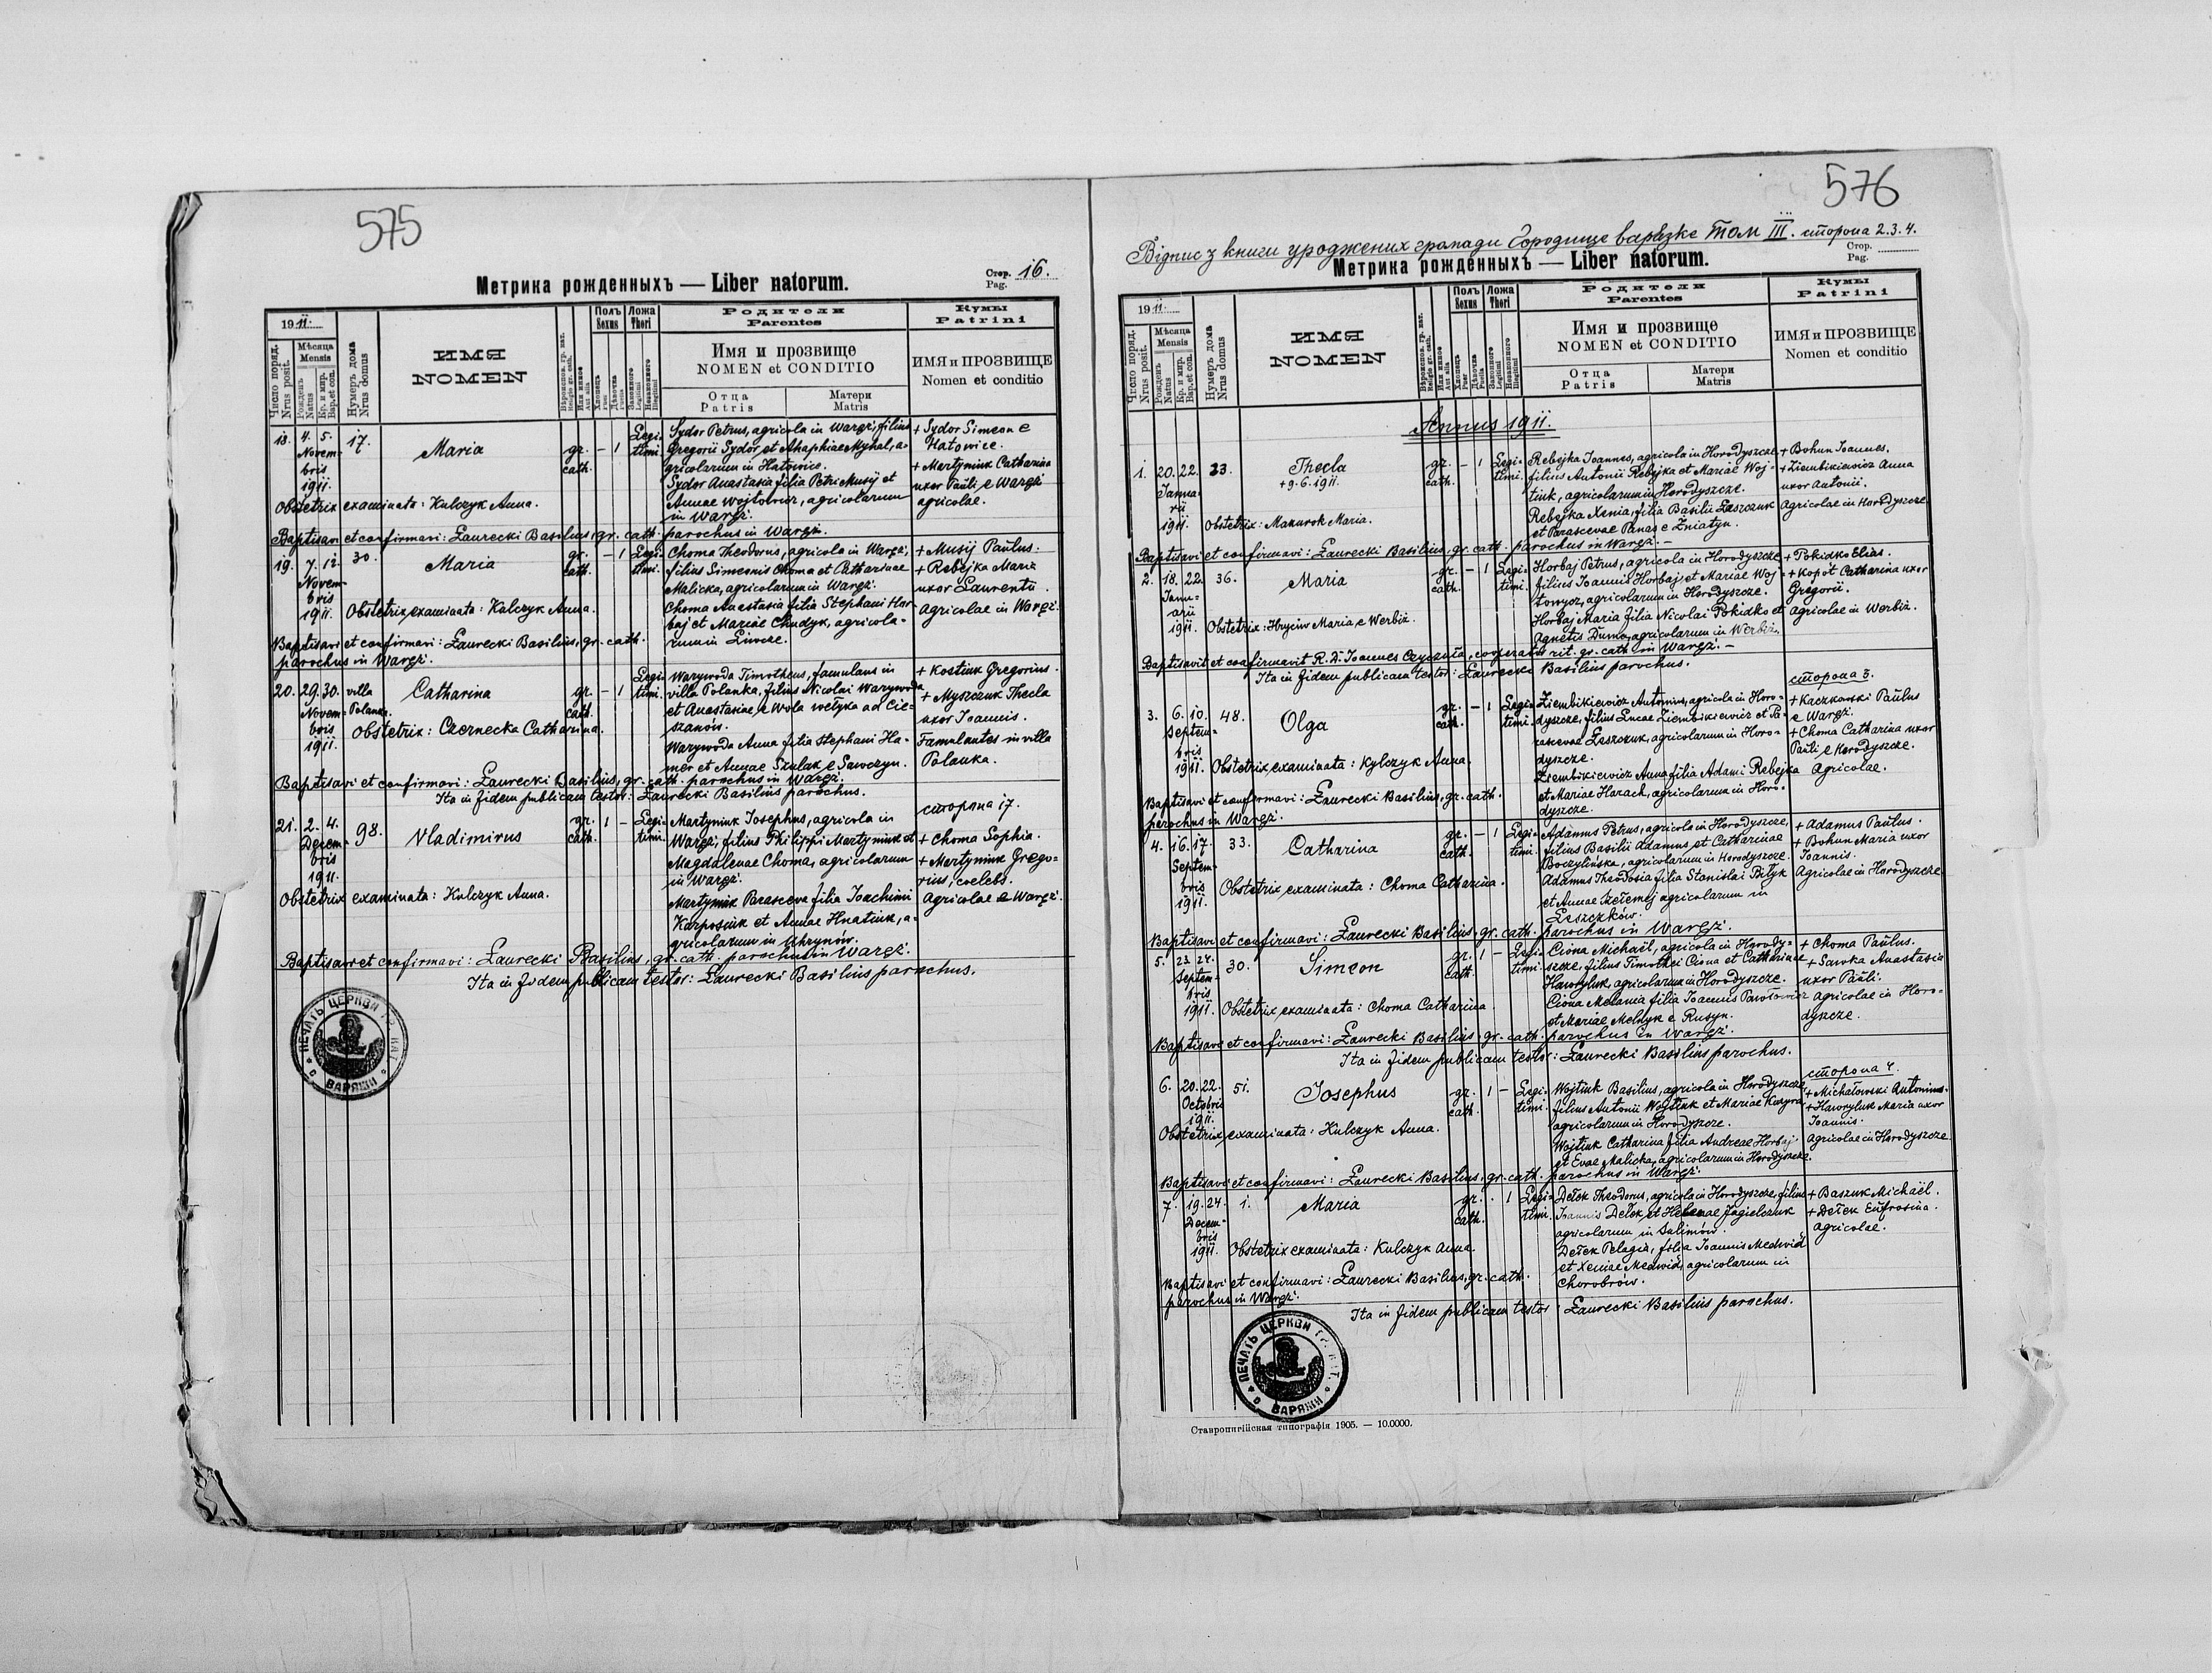 575
Метрика рожденныхъ — Liber natorum.
Стор. 16.
Pag.
1911.
Число поряд.
Nrus posit.
Мѣсяца
Mensis
Рожденъ
Natus
Кр. и мир.
Bap. et con.
Нумеръ дома
Nrus domus
ИМЯ
NOMEN
Вѣроиспов. гр. кат.
Religio gr. cath.
Или инное
Aut alia
Полъ
Sexus
Хлопецъ
Puer
Дѣвочка
Puella
Ложа
Thori
Законного
Legitimi
Незаконного
Illegitimi
Родители
Parentes
Имя и прозвище
NOMEN et CONDITIO
Отца
Patris
Матери
Matris
Кумы
Patrini
ИМЯ и ПРОЗВИЩЕ
Nomen et conditio
18. 4. 5. Novembris 1911. 17. Maria gr. cath. – 1 Legitimi
Sydor Petrus, agricola in Waręż, filius
Gregorii Sydor et Ahaphiae Myhal, a-
gricolarum in Hatowice.
Sydor Anastasia filia Petri Musij et
Annae Wojtowicz, agricolarum
in Waręż.
+ Sydor Simeon e
Hatowice.
+ Martyniuk Catharina
uxor Pauli e Waręż
agricolae.
Obstetrix examinata: Kulczyk Anna.
Baptisavi et confirmavi: Ławrecki Basilius, gr. cath. parochus in Waręż.
19. 7. 12. Novembris 1911. 30. Maria gr. cath. – 1 Legitimi.
Choma Theodorus, agricola in Waręż,
filius Simeonis Choma et Catharinae
Malicka, agricolarum in Waręż.
Choma Anastasia filia Stephani Hor-
baj et Mariae Chudyk, agricola-
rum in Liwcze.
+ Musij Paulus.
+ Rebejka Maria
uxor Laurentii.
Agricolae in Waręż.
Obstetrix examinata: Kulczyk Anna.
Baptisavi et confirmavi: Ławrecki Basilius, gr. cath.
parochus in Waręż.
20. 29. 30. Novembris 1911. villa Polanka. Catharina gr. cath. – 1 Legitimi.
Warywoda Timotheus, famulans in
villa Polanka, filius Nicolai Warywoda
et Anastasiae, e Wola wełyka ad Cie-
szanów.
Warywoda Anna filia Stephani Ha-
mer et Annae Szulak e Sawczyn.
+ Kostiuk Gregorius.
+ Myszczuk Thecla
uxor Joannis.
Famulantes in villa
Polanka.
Obstetrix: Czernecka Catharina.
Baptisavi et confirmavi: Ławrecki Basilius, gr. cath. parochus in Waręż.
Ita in fidem publicam testor: Ławrecki Basilius parochus.
сторона 17.
21. 2. 4. Decembris 1911. 98. Vladimirus gr. cath. 1 – Legitimi.
Martyniuk Josephus, agricola in
Waręż, filius Philippi Martyniuk et
Magdalenae Choma, agricolarum
in Waręż.
Martyniuk Parasceva filia Joachimi
Karposiuk et Annae Hnatiuk, a-
gricolarum in Uhrynów.
+ Choma Sophia.
+ Martyniuk Grego-
rius, coelebs.
Agricolae e Waręż.
Obstetrix examinata: Kulczyk Anna.
Baptisavi et confirmavi: Ławrecki Basilius, gr. cath. parochus in Waręż.
Ita in fidem publicam testor: Ławrecki Basilius parochus.
ПЕЧАТЬ ЦЕРКВИ ГР. КАТ.
ВАРЯЖИ
576
Відпис з книги уроджених громади Городище варязке Том III. сторона 2. 3. 4.
Метрика рожденныхъ — Liber natorum.
Стор.
Pag.
1911.
Число поряд.
Nrus posit.
Мѣсяца
Mensis
Рожденъ
Natus
Кр. и мир.
Bap. et con.
Нумеръ дома
Nrus domus
ИМЯ
NOMEN
Вѣроиспов. гр. кат.
Religio gr. cath.
Или инное
Aut alia
Полъ
Sexus
Хлопецъ
Puer
Дѣвочка
Puella
Ложа
Thori
Законного
Legitimi
Незаконного
Illegitimi
Родители
Parentes
Имя и прозвище
NOMEN et CONDITIO
Отца
Patris
Матери
Matris
Кумы
Patrini
ИМЯ и ПРОЗВИЩЕ
Nomen et conditio
Annus 1911.
1. 20. 22. Januarii 1911. 23. Thecla + 9. 6. 1911. gr. cath. – 1 Legitimi.
Rebejka Joannes, agricola in Horodyszcze
filius Antonii Rebejka et Mariae Woj-
tiuk, agricolarum in Horodyszcze.
Rebejka Xenia, filia Basilii Leszczuk
et Parascevae Panas e Zniatyn.
+ Bohun Joannes.
+ Ziembikiewicz Anna
uxor Antonii.
Agricolae in Horodyszcze
Obstetrix: Mazurok Maria.
Baptisavi et confirmavi: Ławrecki Basilius, gr. cath. parochus in Waręż. –
2. 18. 22. Januarii 1911. 36. Maria gr. cath. – 1 Legitimi.
Horbaj Petrus, agricola in Horodyszcze
filius Joannis Horbaj et Mariae Woj-
towycz, agricolarum in Horodyszcze.
Horbaj Maria filia Nicolai Pokidko et
Agnetis Duma, agricolarum in Werbiż.
+ Pokidko Elias.
+ Kopót Catharina uxor
Gregorii.
agricolae in Werbiż.
Obstetrix: Hryciw Maria e Werbiż.
Baptisavit et confirmavit R. D. Joannes cooperator rit. gr. cath. in Waręż. –
Ita in fidem publicam testor: Ławrecki Basilius parochus.
сторона 3.
3. 6. 10. Septembris 1911. 48. Olga gr. cath. – 1 Legitimi.
Ziembikiewicz Antonius, agricola in Horo-
dyszcze, filius Lucae Ziembikiewicz et Pa-
rascevae Leszczuk, agricolarum in Horo-
dyszcze.
Ziembikiewicz Anna filia Adami Rebejka
et Mariae Harach, agricolarum in Horo-
dyszcze.
+ Kaczkowski Paulus
e Waręż.
+ Choma Catharina uxor
Pauli e Horodyszcze.
Agricolae.
Obstetrix examinata: Kulczyk Anna.
Baptisavi et confirmavi: Ławrecki Basilius, gr. cath.
parochus in Waręż.
4. 16. 17. Septembris 1911. 33. Catharina gr. cath. – 1 Legitimi.
Adamus Petrus, agricola in Horodyszcze,
filius Basilii Adamus et Catharinae
Boczylińska, agricolarum in Horodyszcze.
Adamus Theodosia filia Stanislai Bityk
et Annae agricolarum in
Leszczków.
+ Adamus Paulus.
+ Bohun Maria uxor
Joannis.
Agricolae in Horodyszcze
Obstetrix examinata: Choma Catharina.
Baptisavi et confirmavi: Ławrecki Basilius, gr. cath. parochus in Waręż.
5. 23. 24. Septembris 1911. 30. Simeon gr. cath. 1 – Legitimi.
Ciona Michaël, agricola in Horody-
szcze, filius Timothei Ciona et Catharinae
Hawryluk, agricolarum in Horodyszcze.
Ciona Melania filia Joannis
et Mariae Melnyk e Rusyn.
+ Choma Paulus.
+ Sawka Anastasia
uxor Pauli.
Agricolae in Horo-
dyszcze.
Obstetrix examinata: Choma Catharina.
Baptisavi et confirmavi: Ławrecki Basilius, gr. cath. parochus in Waręż.
Ita in fidem publicam testor: Ławrecki Basilius parochus.
сторона 4.
6. 20. 22. Octobris 1911. 51. Josephus gr. cath. 1 – Legitimi.
Wojtiuk Basilius, agricola in Horodyszcze
filius Antonii Wojtiuk et Mariae
agricolarum in Horodyszcze.
Wojtiuk Catharina filia Andreae Horbaj
et Evae Malicka, agricolarum in Horodyszcze.
+ Michałowski Antonius.
+ Hawryluk Maria uxor
Joannis.
Agricolae in Horodyszcze
Obstetrix examinata: Kulczyk Anna.
Baptisavi et confirmavi: Ławrecki Basilius, gr. cath. parochus in Waręż.
7. 19. 24. Decembris 1911. 1. Maria gr. cath. . 1 Legitimi.
Dełek Theodorus, agricola in Horodyszcze, filius
Joannis Dełek et Helenae Jagielczuk
agricolarum in Sulimów.
Dełek Pelagia, filia Joannis Medwid
et Xeniae Medwid, agricolarum in
Chorobrów.
+ Baszuk Michaël.
+ Dełek Eufrosina.
agricolae.
Obstetrix examinata: Kulczyk Anna.
Baptisavi et confirmavi: Ławrecki Basilius, gr. cath.
parochus in Waręż.
Ita in fidem publicam testor: Ławrecki Basilius parochus.
ПЕЧАТЬ ЦЕРКВИ
ВАРЯЖИ
Ставропигійская типографія 1905. — 10.0000.